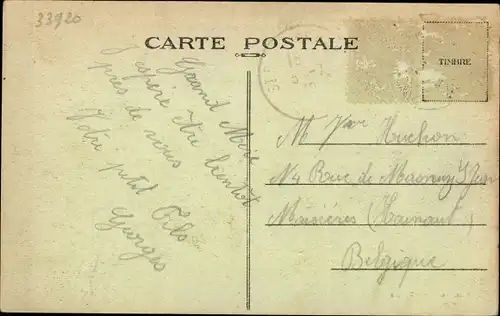 33920
CARTE POSTALE
TIMBRE
Grand Mère
J'espère être bientôt
près de vous
Votre petit Fils
Georges
M Huchon
N4 Rue de
Maisières (Hainaut)
Belgique